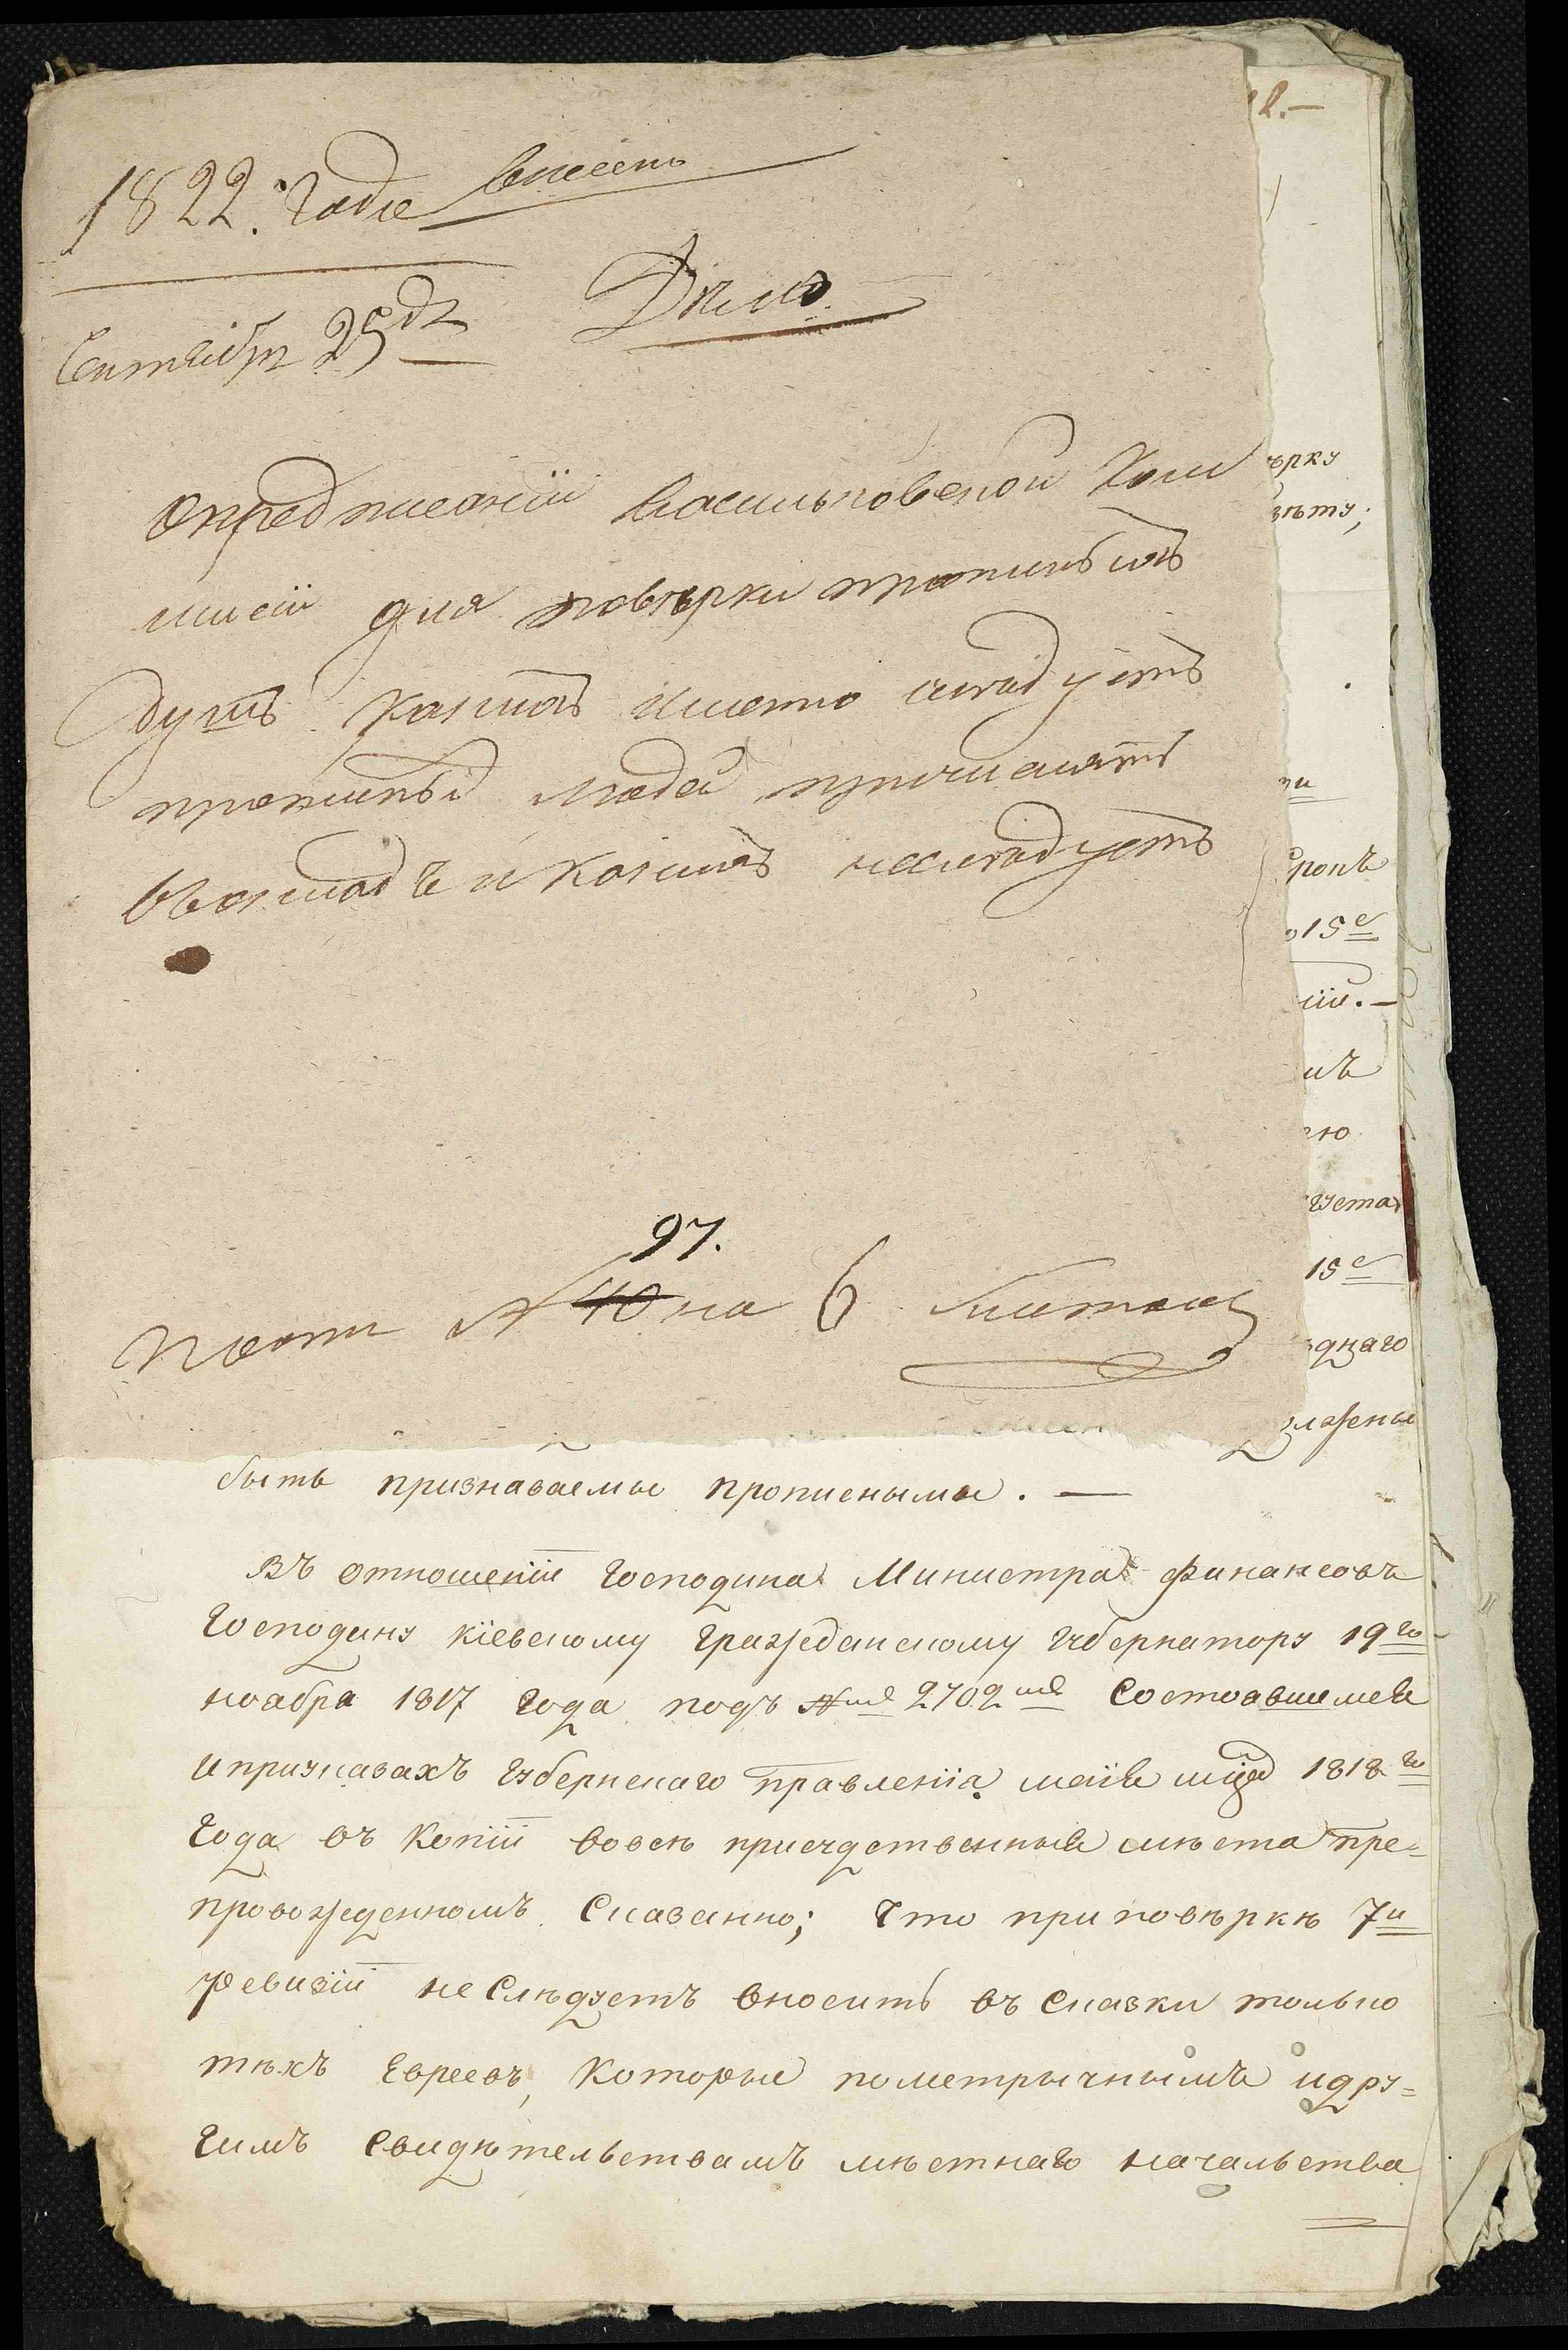 1822. Года
Сентября 25д
Дѣло
Опредписаніи Васильковской Коми
мисіи для повѣрки прописныхъ
душъ какихъ именно слѣдуетъ
прописныхъ людей причислять
въокладъ и какихъ неслѣдуетъ
97.
40 на 6 листахъ
ѣрку
ѣту;
15е
іи.—
мъ
ею
15е
быть признаваемы прописными. —
Въ отношеніи Господина Министра Финансовъ
Господину кіевскому Гражданскому Губернатору 19го
ноября 1817 года подъ №мъ 2702мъ Состоявшемся
иприуказахъ Губернскаго правленія маія мца 1818го
Года въ Копіи вовсѣ присудственныя мѣста пре=
провожденномъ Сказанно; Что при повѣркѣ 7и
ревизіи не Слѣдуетъ вносить въ Сказки только
тѣхъ Евреевъ, Которые пометрычнымъ идру=
гимъ Свидѣтельствамъ мѣстнаго начальства